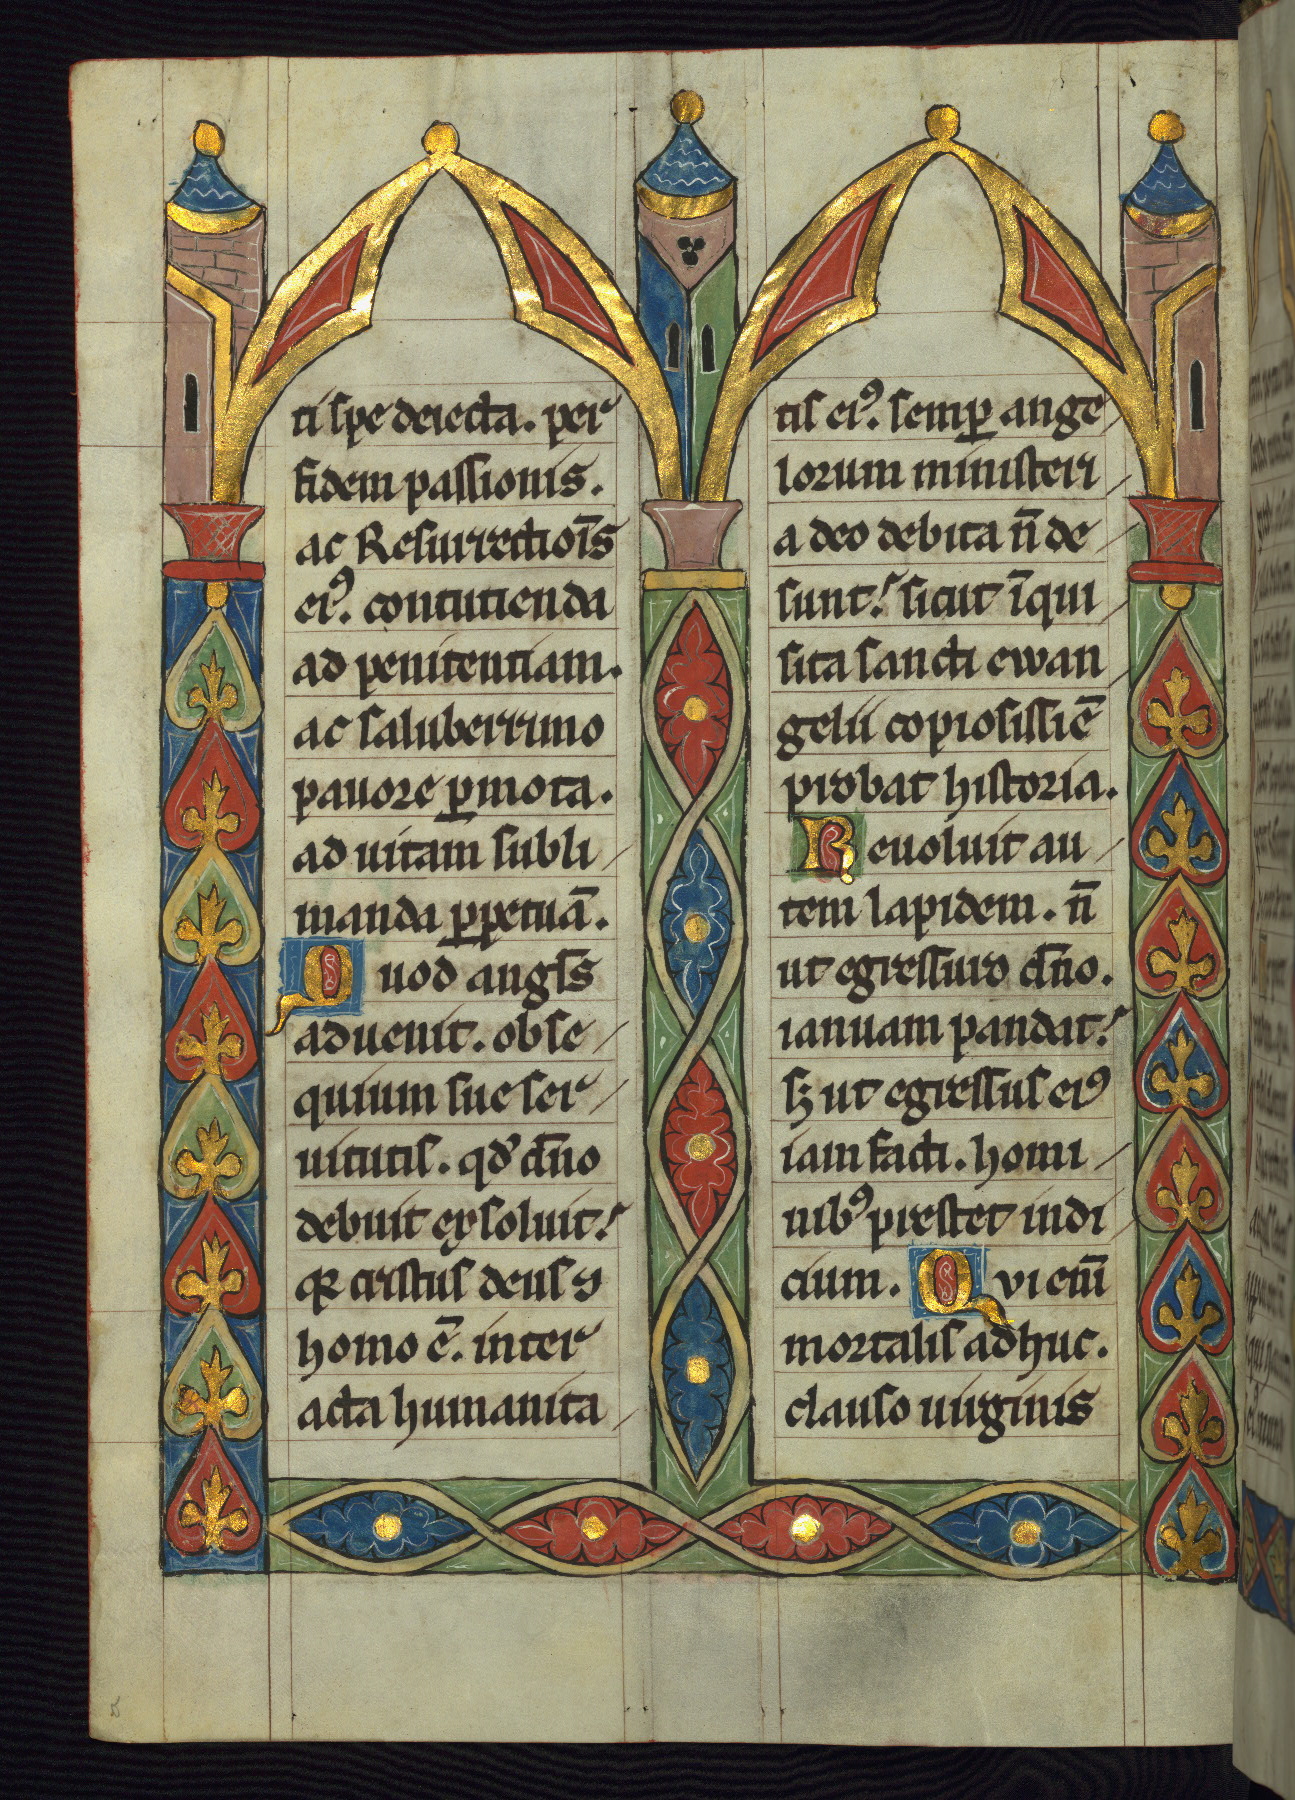 ti spe deiecta. per
fidem passionis.
ac Resurrectiōīs
ei⁹. concutienda
ad penitentiam.
ac saluberrimo
pauore ꝑmota.
ad uitam subli
manda ꝑpetuā.
Quod angl̄s
aduenit. obse
quium sue ser
uitutis. qd̓ dn̄o
debuit exsoluit!
qꝛ cristus deus ⁊
homo ē. inter
acta humanita
tis ei⁹. semꝑ ange
lorum ministeri
a deo debita n̄ de
sunt! sicut īqui
sita sancti ewan
gelii copiosissiē
probat historia.
Reuoluit au
tem lapidem. n̄
ut egressuro dn̄o.
ianuam pandat!
sꝫ ut egressus ei⁹
iam facti. homi
nib⁹ prestet indi
cium. Qui eni̅
mortalis adhuc.
clauso uirginis